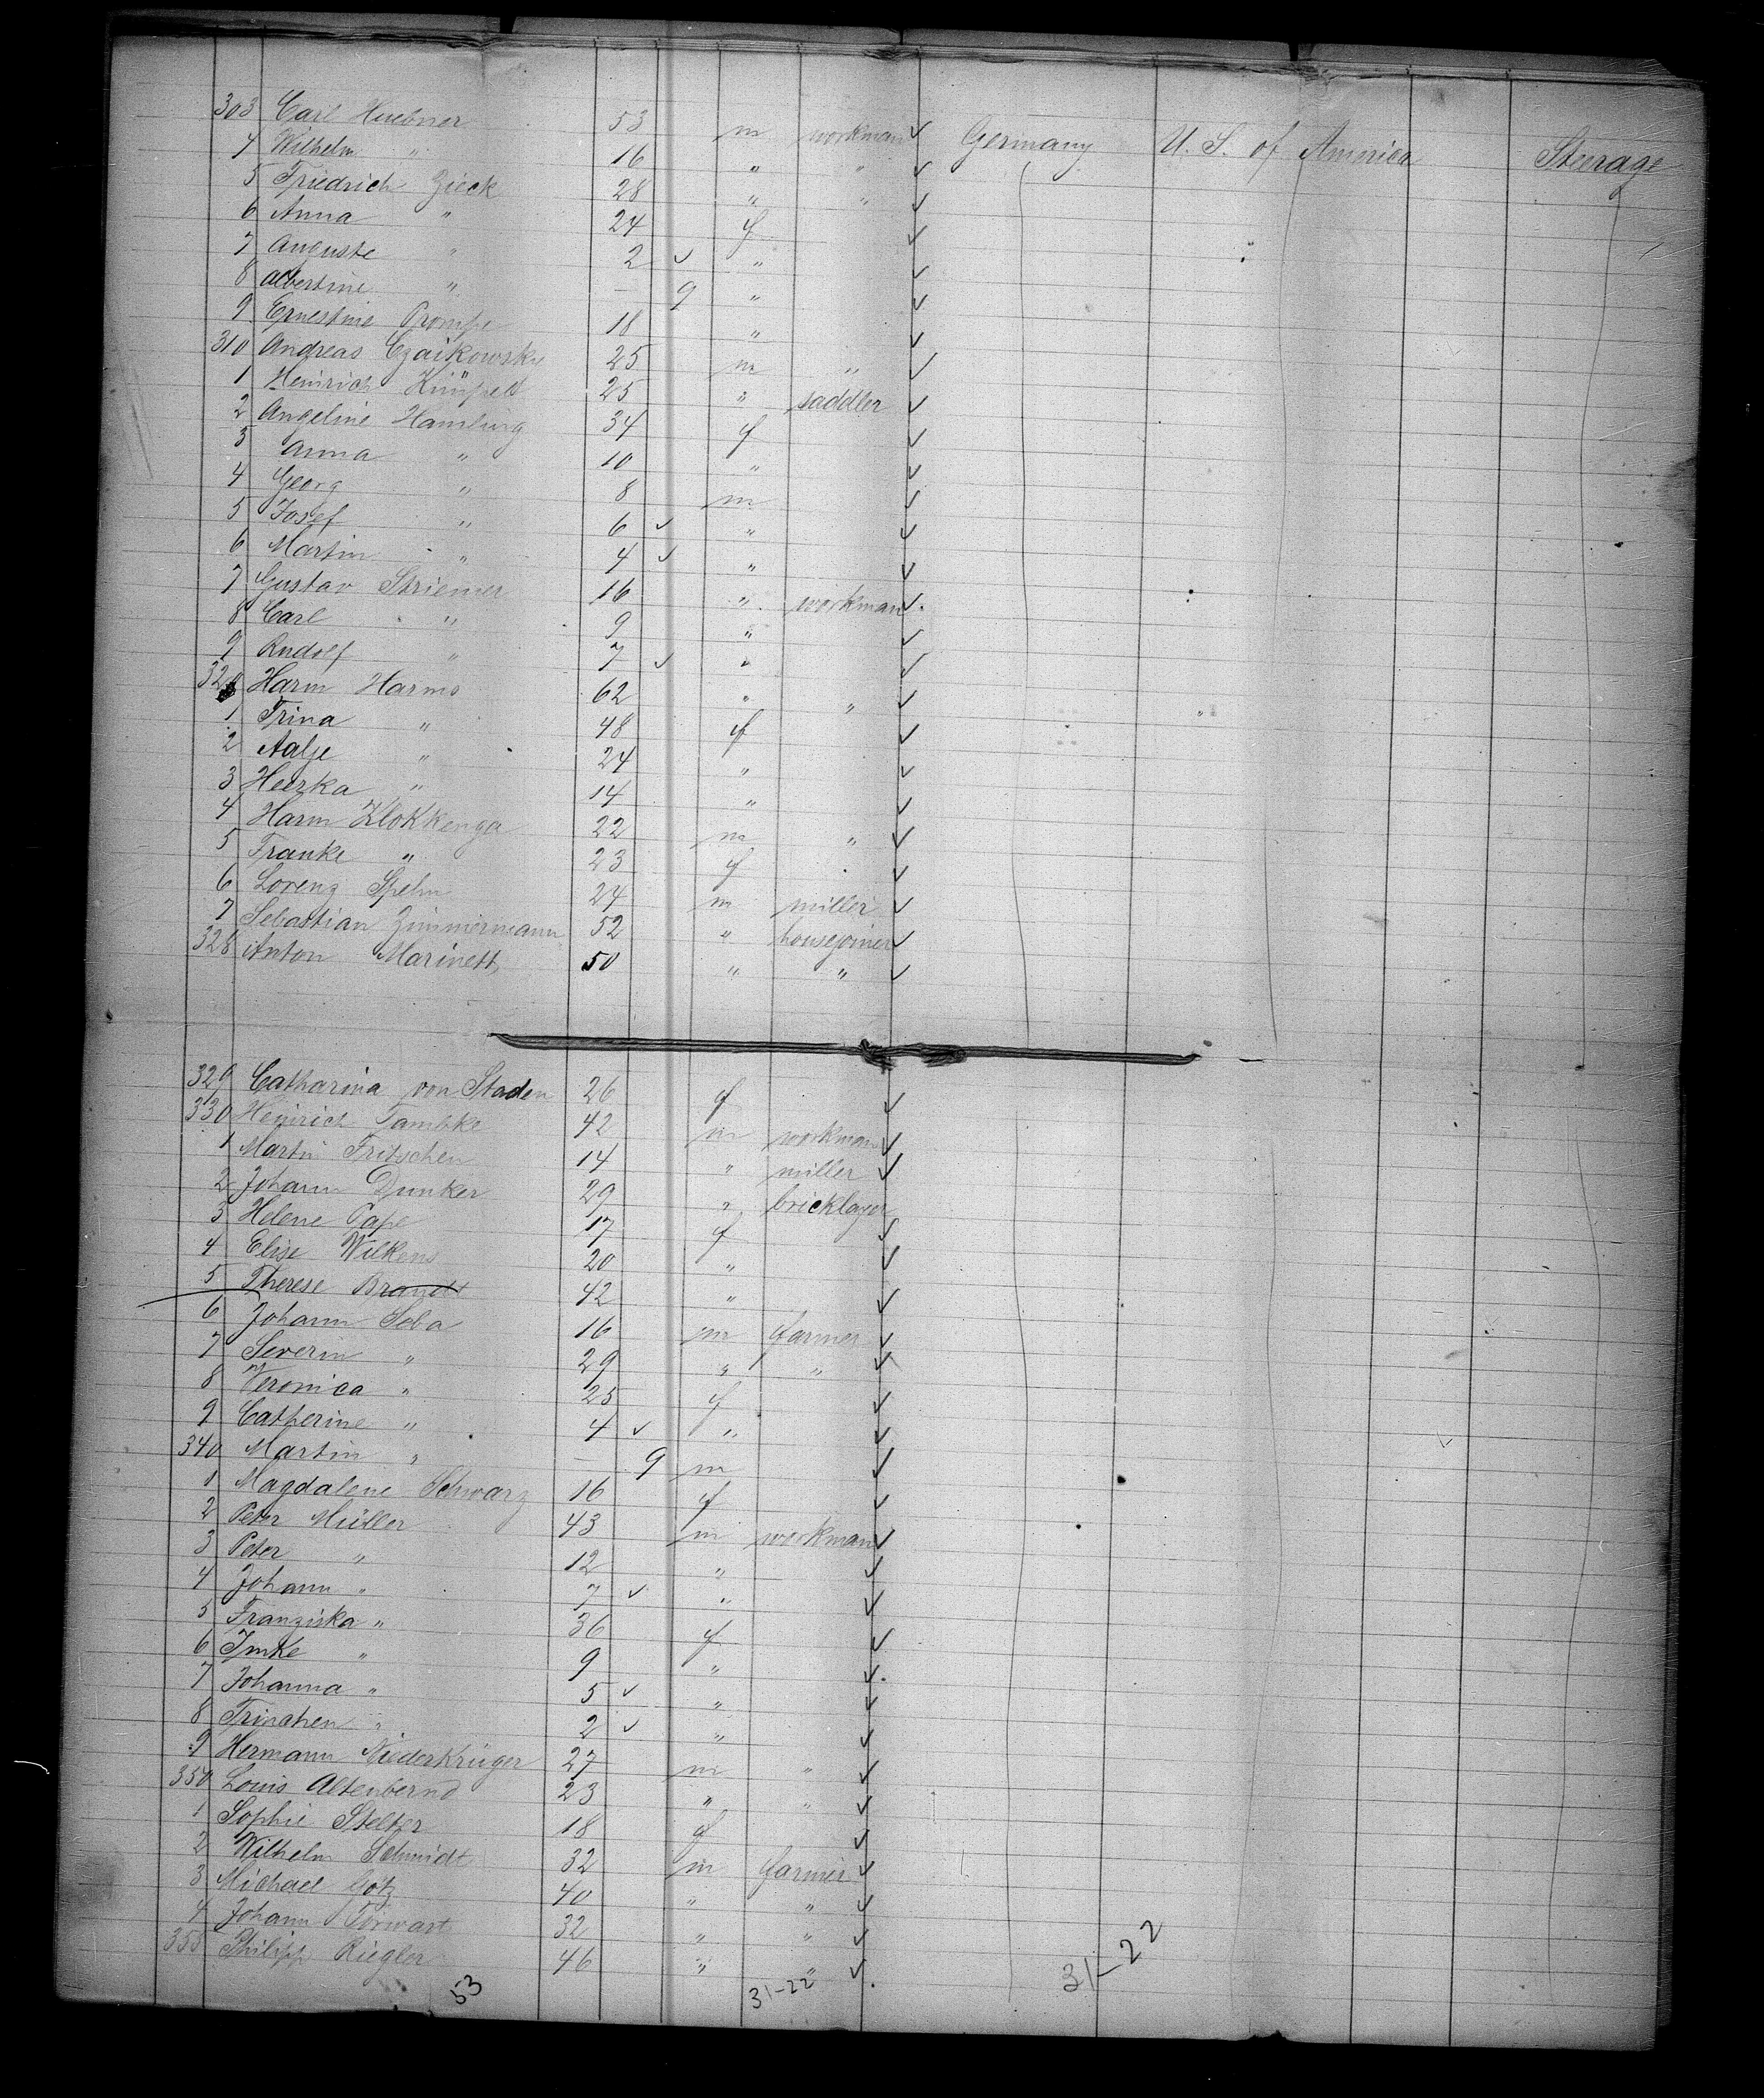 303 Carl Huebner 53 m workman ✓ Germany U. S. of America Steerage
4 Wilhelm " 16 " " ✓
5 Friedrich Zieck 28 " " ✓
6 Anna " 24 f ✓
7 Auguste " 2 ✓ " ✓
8 Albertine " — 9 " ✓
9 Ernestine 18 " ✓
310 Andreas Czaikowsky 25 m " ✓
1 Heinrich 25 " saddler ✓
2 Angeline Hamling 34 f ✓
3 Anna " 10 " ✓
4 Georg " 8 m ✓
5 Josef " 6 ✓ " ✓
6 Martin " 4 ✓ " ✓
7 Gustav Striemer 16 " workman ✓
8 Carl " 9 " ✓
9 Rudolf " 7 ✓ " ✓
320 Harm Harms 62 " " ✓
1 Trina " 48 f ✓
2 Aalje " 24 " ✓
3 Heerka " 14 " ✓
4 Harm Klokkenga 22 m " ✓
5 Frauke " 23 f ✓
6 Lorenz Spehn 24 m miller ✓
7 Sebastian Zimmermann 52 " housejoiner ✓
328 Anton Marinett 50 " " ✓
329 Catharina von Staden 26 f ✓
330 Heinrich Tambke 42 m workman ✓
1 Martin Fritschen 14 " miller ✓
2 Johann Dunker 29 " bricklayer
3 Helene Pape 17 f ✓
4 Elise Wilkens 20 " ✓
5 Therese Brandt 42 " ✓
6 Johann Seba 16 m farmer ✓
7 Severin " 29 " " ✓
8 Veronica " 25 f ✓
9 Catherine " 4 ✓ " ✓
340 Martin " — 9 m ✓
1 Magdalene Schwarz 16 f ✓
2 Peter Müller 43 m workman ✓
3 Peter " 12 " ✓
4 Johann " 7 ✓ " ✓
5 Franziska " 36 f ✓
6 Imke " 9 " ✓
7 Johanna " 5 ✓ " ✓
8 Trinchen " 2 ✓ " ✓
9 Hermann Niederkrüger 27 m " ✓
350 Louis Altenbernd 23 " " ✓
1 Sophie Stelter 18 f ✓
2 Wilhelm Schmidt 32 m farmer ✓
3 Michael Götz 40 " " ✓
4 Johann 32 " " ✓
355 Philipp Riegler 46 " " ✓
53 31-22 31-22